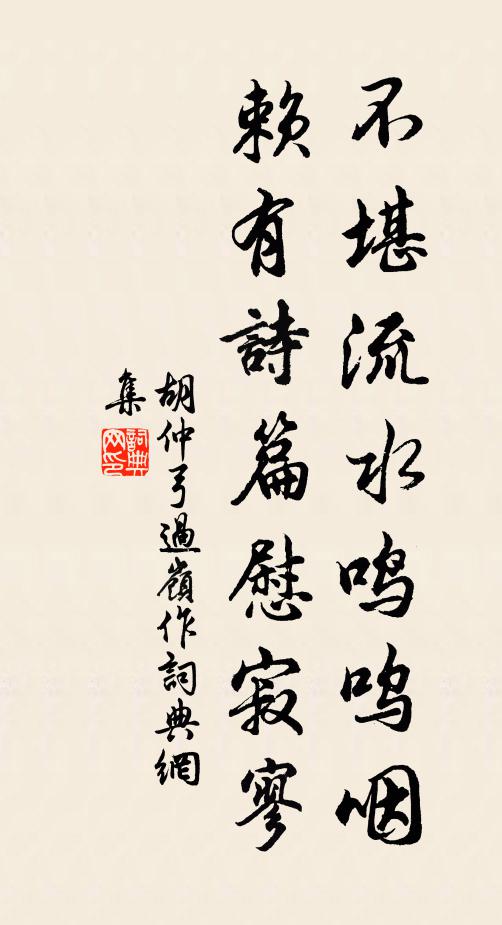 不堪流水鸣鸣咽
賴有詩篇慰寂寥
胡仲弓過嶺作詞典網
集
詞典网印